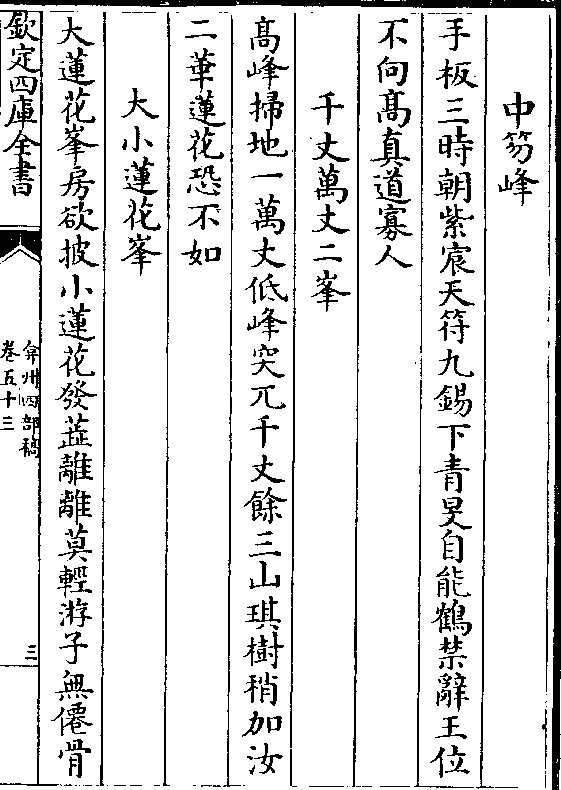 中笏峰
手板三時朝紫宸天符九錫下青旻自能鶴禁辭王位
不向髙真道寡人
千丈萬丈二峯
髙峰掃地一萬丈低峰突兀千丈餘三山琪樹稍加汝
二華蓮花恐不如
大小蓮花峯
大蓮花峯房欲披小蓮花發蕋離離莫輕游子無僊骨
欽定四庫全書
弇州四部稿
卷五十三
三